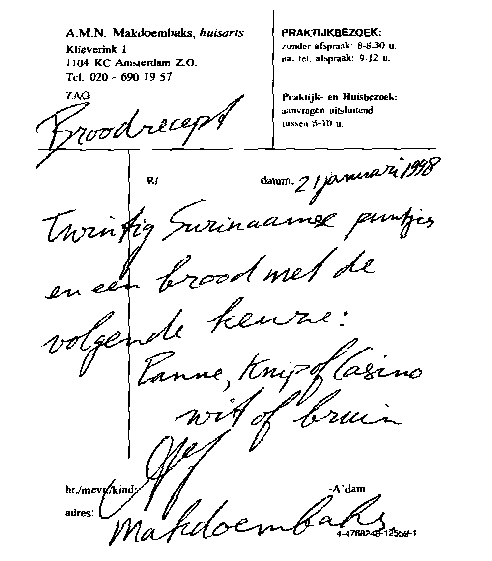 A.M.N. Makdoembaks, huisarts
Klieverink 1
1104 KC Amsterdam Z.O.
Tel. 020 - 690 19 57
ZAO
PRAKTIJKBEZOEK:
zonder afspraak: 8-8.30 u.
na. tel. afspraak: 9-12 u.
Praktijk- en Huisbezoek:
aanvragen uitsluitend
tussen 8-10 u.
Broodrecept
R/ datum. 21 januari 1998
Twintig Surinaamse puntjes
en een brood met de
volgende keuze:
Panne, Knip of Casino
wit of bruin
hr./mevr./kind: -A'dam
adres:
Makdoembaks